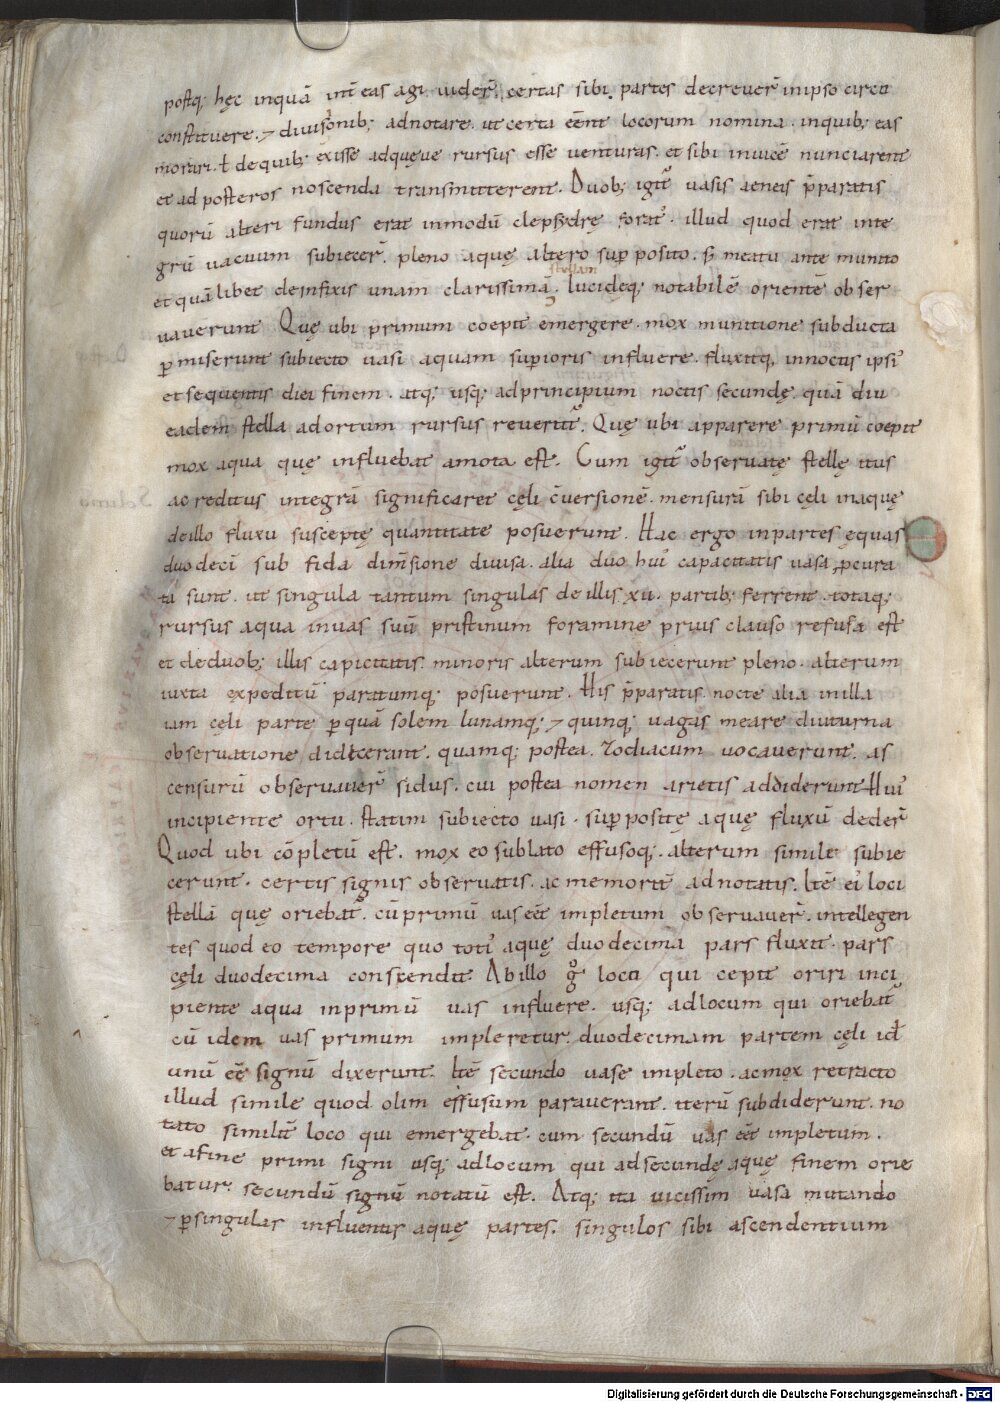 postq; hęc inquā int̄ eas agi uider̄. certas sibi. partes decreuer̄ in ipso circu
constituere. & diuisionib; adnotare. ut certa eēnt locorum nomina. in quib; eas
morari. ł de quib; exisse adquęue rursus esse uenturas. et sibi inuicē nunciarent
et ad posteros noscenda transmitterent. Duob; igit᷑ uasis aeneis p̄paratis
quorū alteri fundus erat in modū clepsydrę forat᷑. illud quod erat inte
grū uacuum subiecer̄. pleno aquę altero sup posito. s; meatu ante munito
stellam
et quālibet de infixis unam clarissimā. lucideq; notabilē orientē obser
uauerunt. Quę ubi primum coepit emergere. mox munitione subducta
ꝑmiserunt subiecto uasi aquam superioris influere. fluxitq; in noctis ipsi᷒
et sequentis diei finem. atq; usq; ad principium noctis secundę. quā diu
eadem stella ad ortum rursus reuertit᷑. Quę ubi apparere primū coepit
mox aqua quę influebat amota est. Cum igit᷑ obseruatę stellę itus
ac reditus integrā significaret cęli c̄uersionē. mensurā sibi cęli in aquę
de illo fluxu susceptę quantitate posuerunt. Hac ergo in partes ęquas
duodeci sub fida dim̄sione diuisa. alia duo hui᷒ capacitatis uasa ꝓcura
ta sunt. ut singula tantum singulas de illis xii. partib; ferrent. totaq;
rursus aqua in uas suū pristinum foramine prius clauso refusa est
et de duob; illis capicitatis minoris alterum subiecerunt pleno. alterum
iuxta expeditū paratumq; posuerunt. His p̄paratis nocte alia in illa
iam cęli parte ꝑ quā solem lunamq; & quinq; uagas meare diuturna
obseruatione didicerant. quamq; postea. zodiacum uocauerunt. as
censurū obseruauer̄ sidus. cui postea nomen arietis addiderunt. Hui᷒
incipiente ortu. statim subiecto uasi. sup positę aquę fluxū deder̄
Quod ubi cōpletū est. mox eo sublato effusoq;. alterum simile subie
cerunt. certis signis obseruatis. ac memorit̄ adnotatis. Itē ei᷒ loci
stellā quę oriebat᷑. cū primū uas eēt impletum obseruauer̄. intellegen
tes quod eo tempore quo toti᷒ aquę duodecima pars fluxit. pars
cęli duodecima conscendit. Ab illo g̊ loco qui cepit oriri inci
piente aqua in primū uas influere. usq; ad locum qui oriebat᷑
cū idem uas primum impleretur. duodecimam partem cęli id
unū eē signū dixerunt. Itē secundo uase impleto. ac mox retracto
illud simile quod olim effusum parauerant. iterū subdiderunt. no
tato similit̄ loco qui emergebat. cum secundū uas eēt impletum.
et a fine primi signi usq; ad locum qui ad secundę aquę finem orie
batur. secundū signū notatū est. Atq; ita uicissim uasa mutando
& ꝑ singulas influentis aquę partes. singulos sibi ascendentium
Digitalisierung gefördert durch die Deutsche Forschungsgemeinschaft - DFG